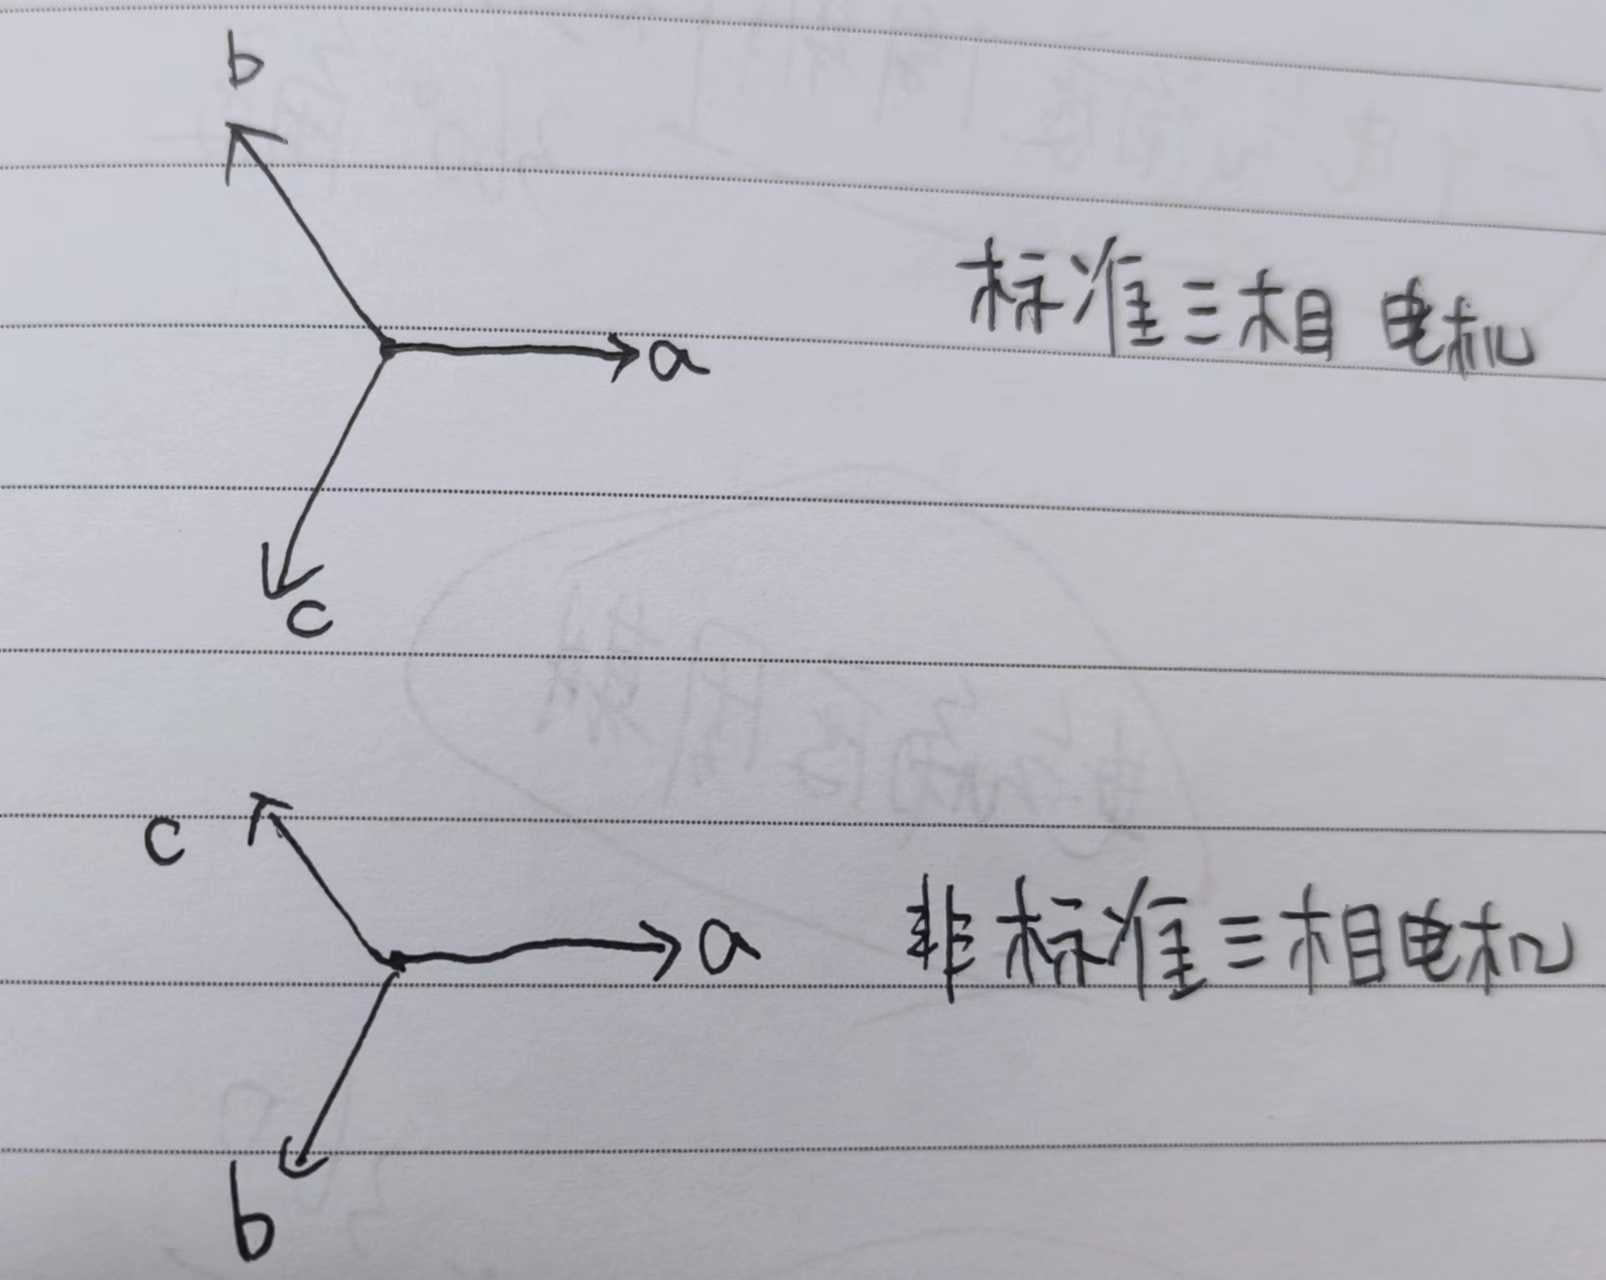 b
标准三相电机
a
c
c
a 非标准三相电机
b